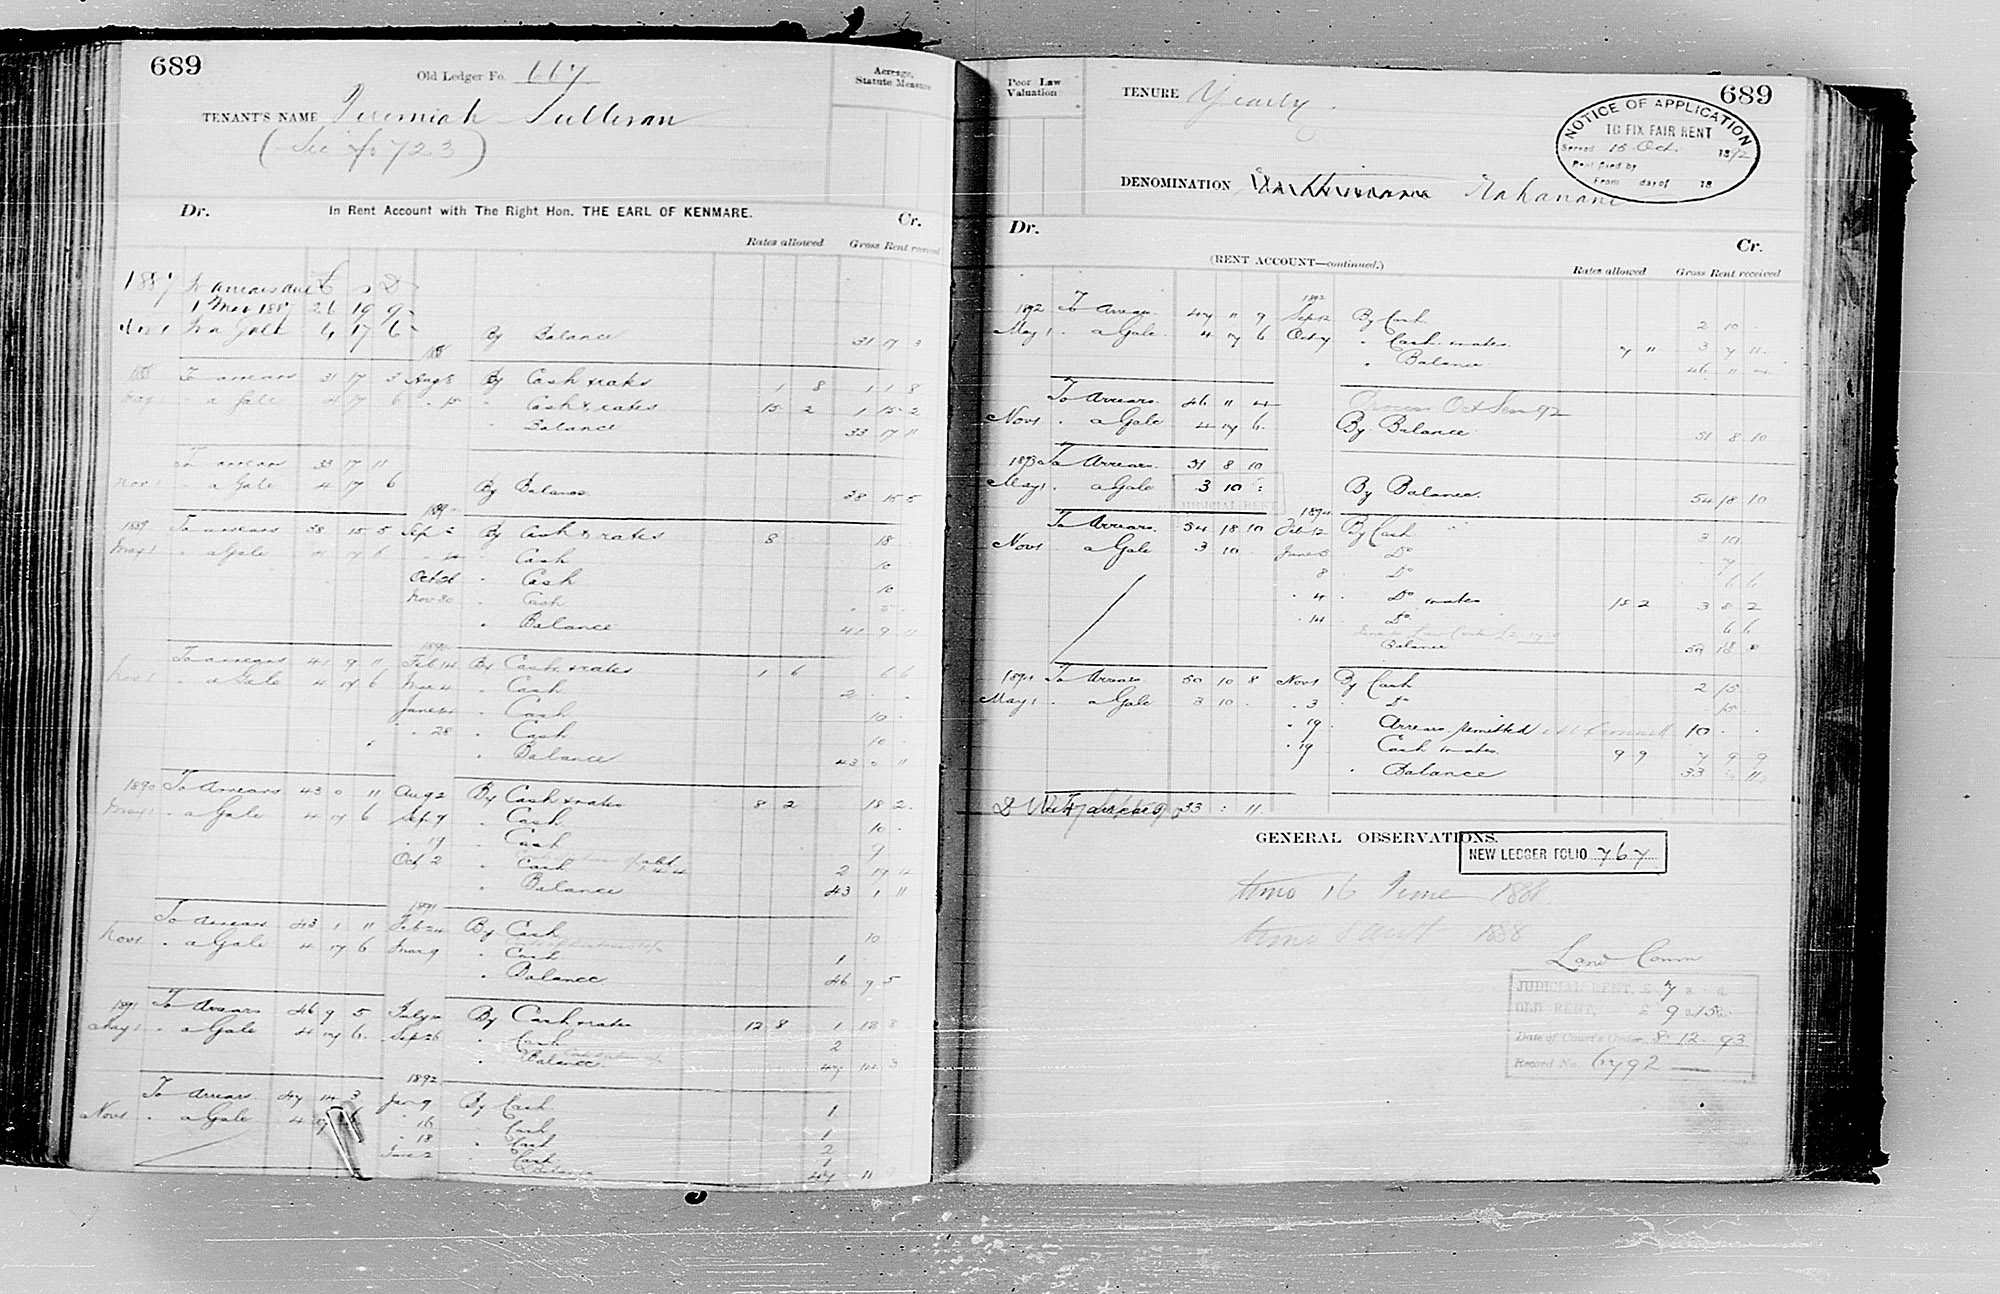 689
Old Ledger Fo. 667
Acreage, Statute Measure
TENANT'S NAME Jeremiah Sullivan
(See fo 723)
Dr. In Rent Account with The Right Hon. THE EARL OF KENMARE. Cr.
Rates allowed Gross Rent received
1887 To arrears due £ s D
1 May 1887 26 19 9
Nov 1 To a Gale 4 17 6 By Balance 31 17 3
1888
1888 To arrears 31 17 3 Aug 8 By Cash & rates 1 8 1 1 8
May 1 " a Gale 4 17 6 " 15 " Cash & rates 15 2 1 15 2
" Balance 33 17 11
To arrears 33 17 11
Nov 1 " a Gale 4 17 6 By Balance 38 15 5
1889
1889 To arrears 38 15 5 Sep 3 By Cash & rates 8 18
May 1 " a Gale 4 17 6 " Cash 10
Oct 26 " Cash 10
Nov 30 " Cash 5
" Balance 41 9 11
1890
To arrears 41 9 11 Feb 14 By Cash & rates 1 6 6 6
Nov 1 " a Gale 4 17 6 Mar 4 " Cash 2
June " Cash 10
" 28 " Cash 10
" Balance 43 0 11
1890 To Arrears 43 0 11 Aug 2 By Cash & rates 8 2 18 2
May 1 " a Gale 4 17 6 Sep 7 " Cash 10
" 19 " Cash 9
Oct 2 " Cash 2 19 4
" Balance 43 1 11
1891
To Arrears 43 1 11 Feb 24 By Cash 10
Nov 1 " a Gale 4 17 6 Mar 9 " Cash 1
" Balance 46 9 5
1891 To Arrears 46 9 5 July By Cash & rates 12 8 1 12 8
May 1 " a Gale 4 17 6 Sep 26 " Cash 2
" Balance 47 14 3
1892
To Arrears 47 14 3 Jan 9 By Cash 1
Nov 1 " a Gale 4 17 6 " 16 " Cash 1
" 18 " Cash 2
June 2 " Cash 1
" Balance 47 11 9
Poor Law Valuation
TENURE Yearly
689
NOTICE OF APPLICATION
TO FIX FAIR RENT
Served 15 Oct. 1892
Post filed by
From day of 18
DENOMINATION Rahanane
Dr. Cr.
(RENT ACCOUNT—continued.)
Rates allowed Gross Rent received
1892
1892 To Arrears 47 11 9 Sep 12 By Cash 2 10
May 1 " a Gale 4 17 6 Oct 7 " Cash & rates 7 11 3 7 11
" Balance 46 11 4
To Arrears 46 11 4 Process Oct Sess 92
Nov 1 " a Gale 4 17 6 By Balance 51 8 10
1893 To Arrears 51 8 10
May 1 " a Gale 3 10 By Balance 54 18 10
1894
To Arrears 54 18 10 Feb 12 By Cash 3 10
Nov 1 a Gale 3 10 June 5 Do 7
8 Do 6 6
" 4 Do & rates 18 2 3 8 2
" 14 Do 6 6
Balance 50 10 8
1894 To Arrears 50 10 8 Nov 1 By Cash 2 15
May 1 a Gale 3 10 " 3 Do 15
" 19 Arrears remitted 10
" 19 Cash & rates 9 9 7 9 9
" Balance 33 11
33 : 11
GENERAL OBSERVATIONS.
NEW LEDGER FOLIO 767
16 June 1886
1888
Land Comm
JUDICIAL RENT, £ 7 s. d.
OLD RENT, £ 9 s. 15
Date of Court's Order, 8.12.93
Record No. 6792